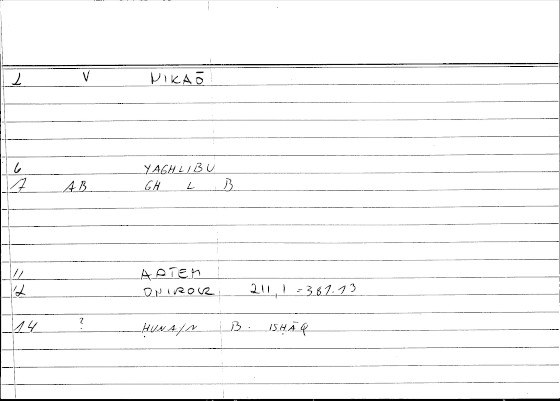 1 V NIKAŌ
6 YAGHLIBU
7 AB GH L B
11 ARTEM
12 ONIROCR 211,1 = 381.13
14 ? ḤUNAIN B. ISḤĀQ